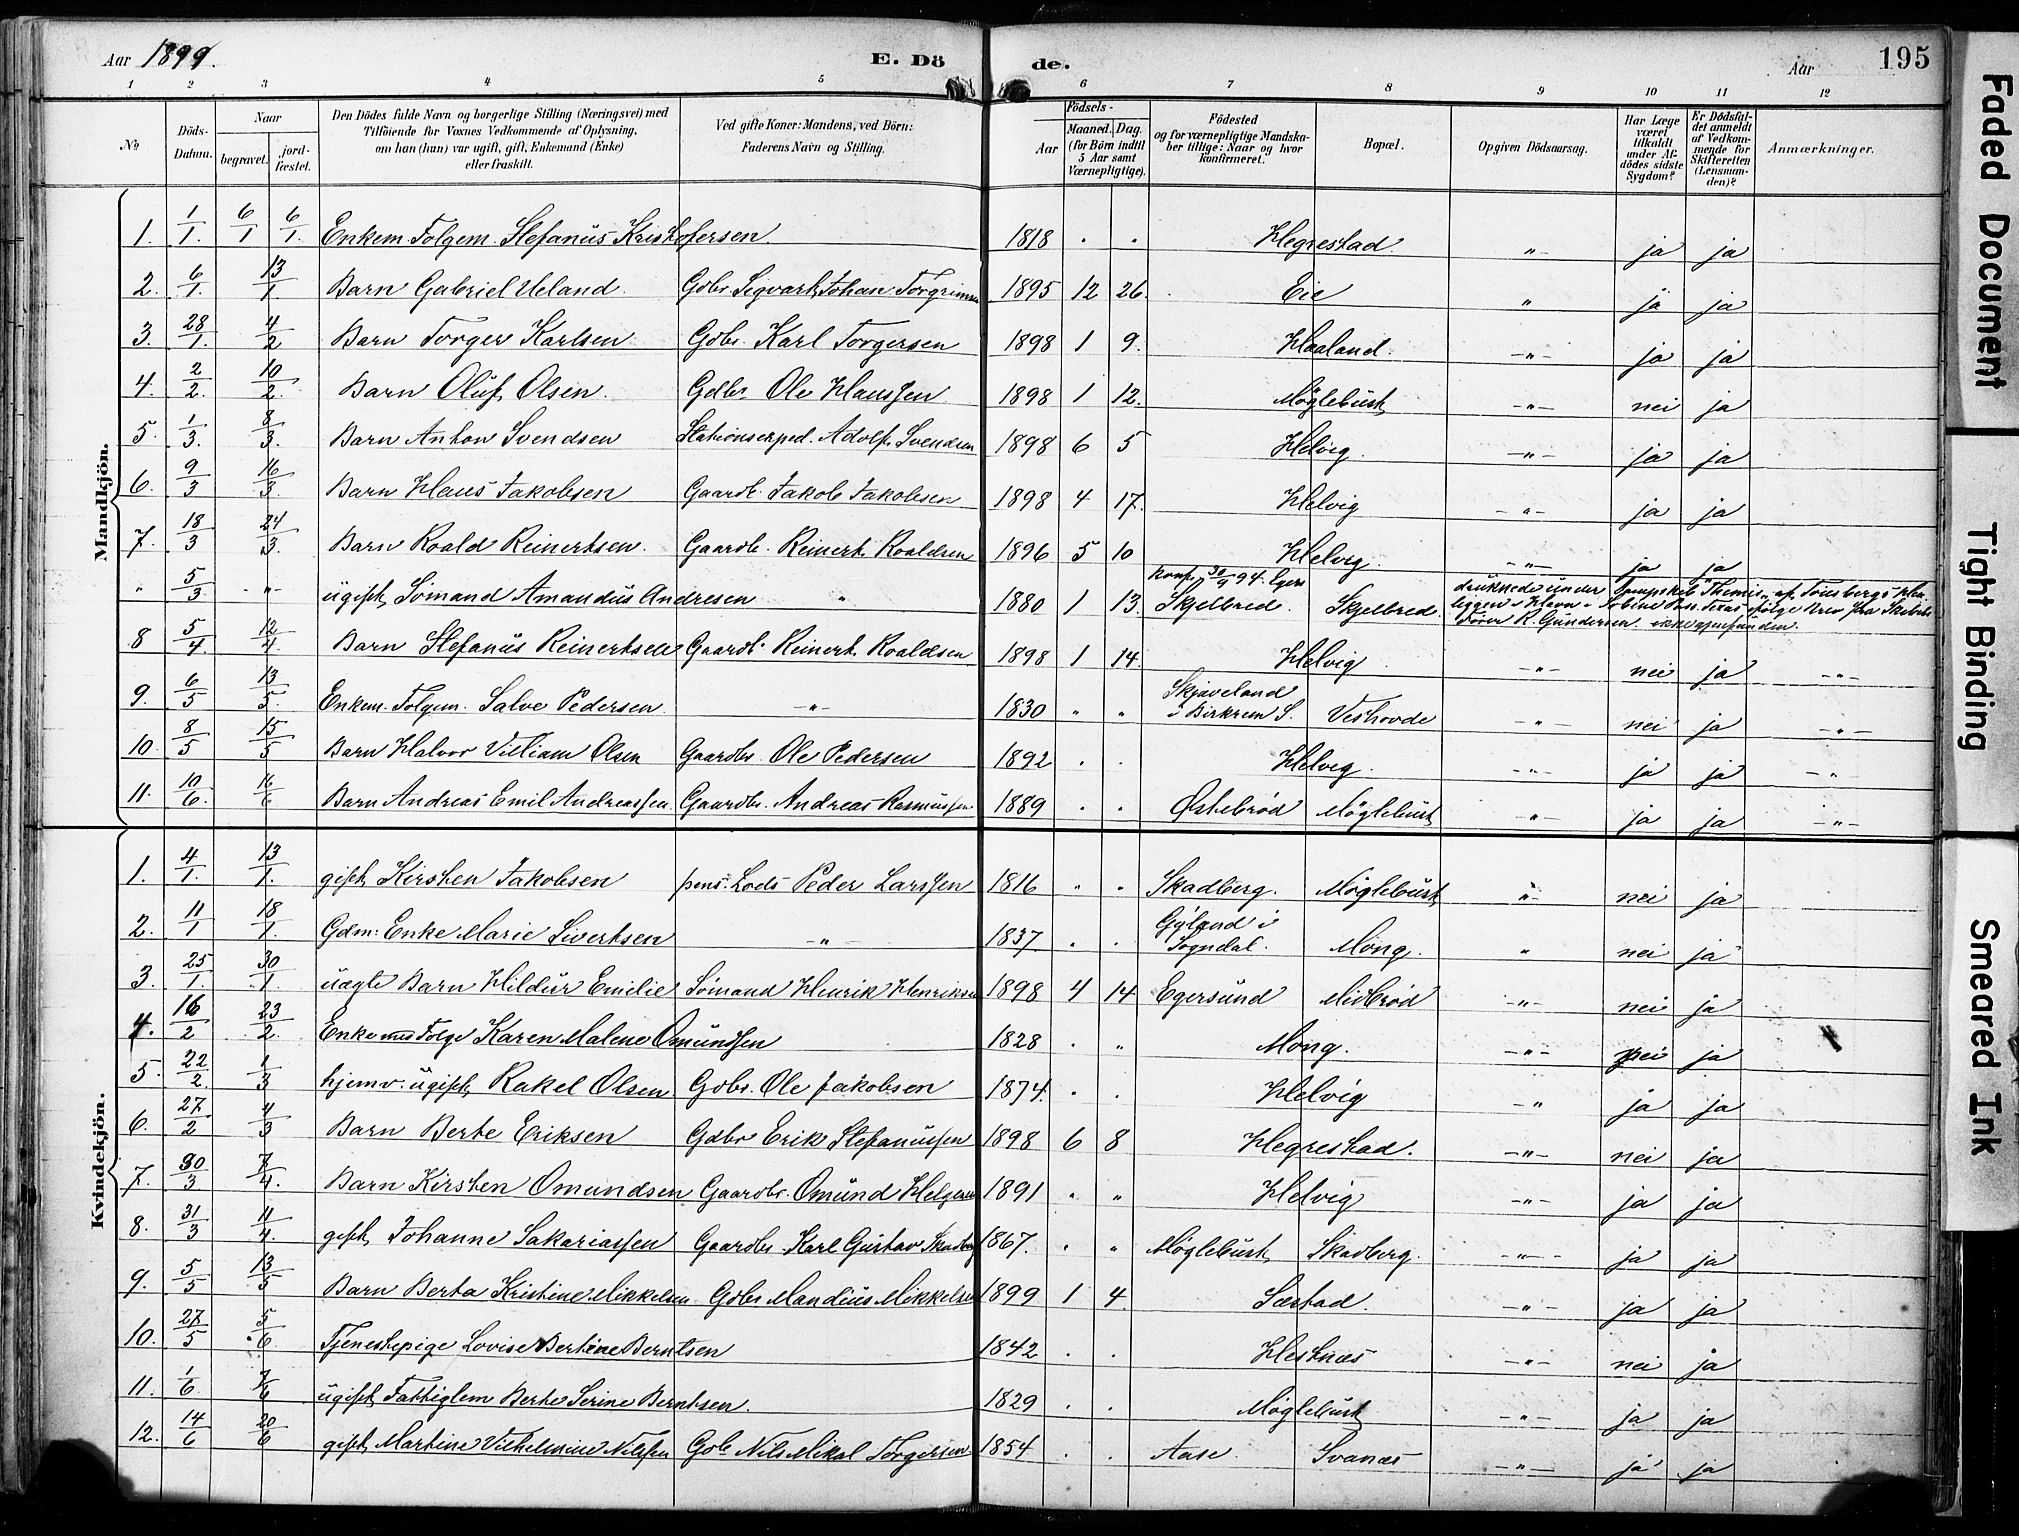 Aar 1899. E. Dö de. Aar 195
1 2 3 4 5 6 7 8 9 10 11 12
№
Döds-Datum.
Naar
begravet.
jord-fæstet.
Den Dödes fulde Navn og borgerlige Stilling (Næringsvei) med
Tilföiende for Voxnes Vedkommende af Oplysning,
om han (hun) var ugift, gift, Enkemand (Enke)
eller fraskilt.
Ved gifte Koner: Mandens, ved Börn:
Faderens Navn og Stilling.
Födsels-
Aar
Maaned. Dag.
(for Börn indtil
5 Aar samt
Værnepligtige).
Födested
og for værnepligtige Mandska-
ber tillige: Naar og hvor
konfirmeret.
Bopæl.
Opgiven Dödsaarsag.
Har Læge
været
tilkaldt
under Af-
dödes sidste
Sygdom?
Er Dödsfal-
det anmeldt
af Vedkom-
mende for
Skifteretten
(Lensman-
den)?
Anmærkninger.
Mandkjön.
1. 1/1. 6/1 6/1. Enkem. Folgem. Stefanus Kristofersen. 1818 " " Hegrestad. " ja ja
2. 6/1. 13/1. Barn Gabriel Ueland. Gdbr. Sigvart Johan Torgrimsen 1895 12 26. Eie " ja ja
3. 28/1. 4/2 Barn Torger Karlsen Gdbr. Karl Torgersen 1898 1 9. Haaland. -"- ja ja
4. 2/2. 10/2. Barn Oluf Olsen. Gdbr. Ole Klaussen 1898 1 12. Möglebust -"- nei ja
5. 1/3. 8/3. Barn Anton Svendsen Stationsexped. Adolf Svendsen 1898 6 5 Helvig. -"- ja ja
6. 9/3 16/3. Barn Klaus Jakobsen Gaardb. Jakob Jakobsen 1898 4 17. Helvig -"- ja ja
7. 18/3 24/3. Barn Roald Reinertsen. Gaardb. Reinert Roaldsen 1896 5 10 Helvig. -"- ja ja
" 5/3 -"- ugift Sömand Amandus Andresen " 1880 1 13. konf. 30/9 94. Egers Skjelbred. Skjelbred. druknede under
8 5/4. 12/4 Barn Stefanus Reinertsen Gaardb. Reinert Roaldsen 1898 1 14. Helvig -"- nei ja -"-
9. 6/5 13/5. Enkem. Folgem. Salve Pedersen. -"- 1830 " " Skjaveland i Birkrem S. Veshovde -"- nei ja -"-
10. 8/5 15/5 Barn Halvor Villiam Olsen Gaardbr. Ole Pedersen 1892 . . Helvig. -"- ja ja -"-
11. 10/6. 16/6 Barn Andreas Emil Andreassen Gaardbr. Andreas Rasmussen 1889 . . Østebrød Möglebust -"- ja ja -"-
Kvindekjön.
1. 4/1. 13/1. gift Kirsten Jakobsen pens. Lods Peder Larssen 1816 " " Skadberg. Möglebust " nei ja
2. 11/1 18/1. Gdm. Enke Marie Sivertsen -"- 1837. . . Gyland i Sogndal. Mong. " nei ja
3. 25/1. 30/1 uægte Barn Hildur Emilie Sömand Henrik Henriksen 1898 4 14 Egersund Midbrød -"- nei ja
4. 16/2 23/2. Enke med Folge Karen Malene Omundsen 1828 . " Mong. -"- nei ja
5. 22/2. 1/3 hjemv. ugift Rakel Olsen Gdbr. Ole Jakobsen 1874. . . Helvig " ja ja
6. 27/2 4/3 Barn Berte Eriksen Gdbr Erik Stefanussen 1898 6 8 Hegrestad. -"- nei ja
7. 30/3 7/4. Barn Kirsten Omundsen Gaardbr. Omund Helgesen 1891 " " Helvig -"- ja ja
8. 31/3 11/4. gift Johanne Sakariassen Gaardbr Karl Gustav Skadberg 1867. . " Möglebust Skadberg. -"- ja ja
9. 5/5 13/5 Barn Berta Kristine Mikkelsen Gdbr Mandius Mikkelsen 1899 1 4. Særtad. -"- ja ja
10. 27/5 5/6 Tjenestepige Lovise Bertine Berntsen 1842 . . Hestnes -"- nei ja
11. 1/6. 7/6 ugift Fattiglem Berte Serine Berntsen. 1829 . . Möglebust -"- ja ja
12. 14/6 20/6 gift Martine Vilhelmine Nilssen Gdb. Nils Mikal Torgersen 1854 . . Aase. Svanes -"- ja ja
Faded Document
Tight Binding
Smeared Ink